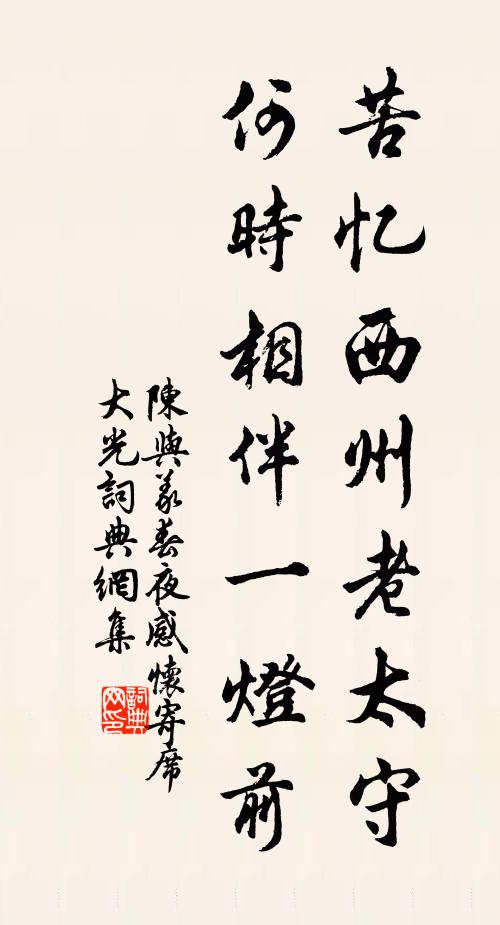 苦忆西州老太守
何時相伴一燈前
陳與義春夜感懷寄席
大光詞典網集
詞典网印